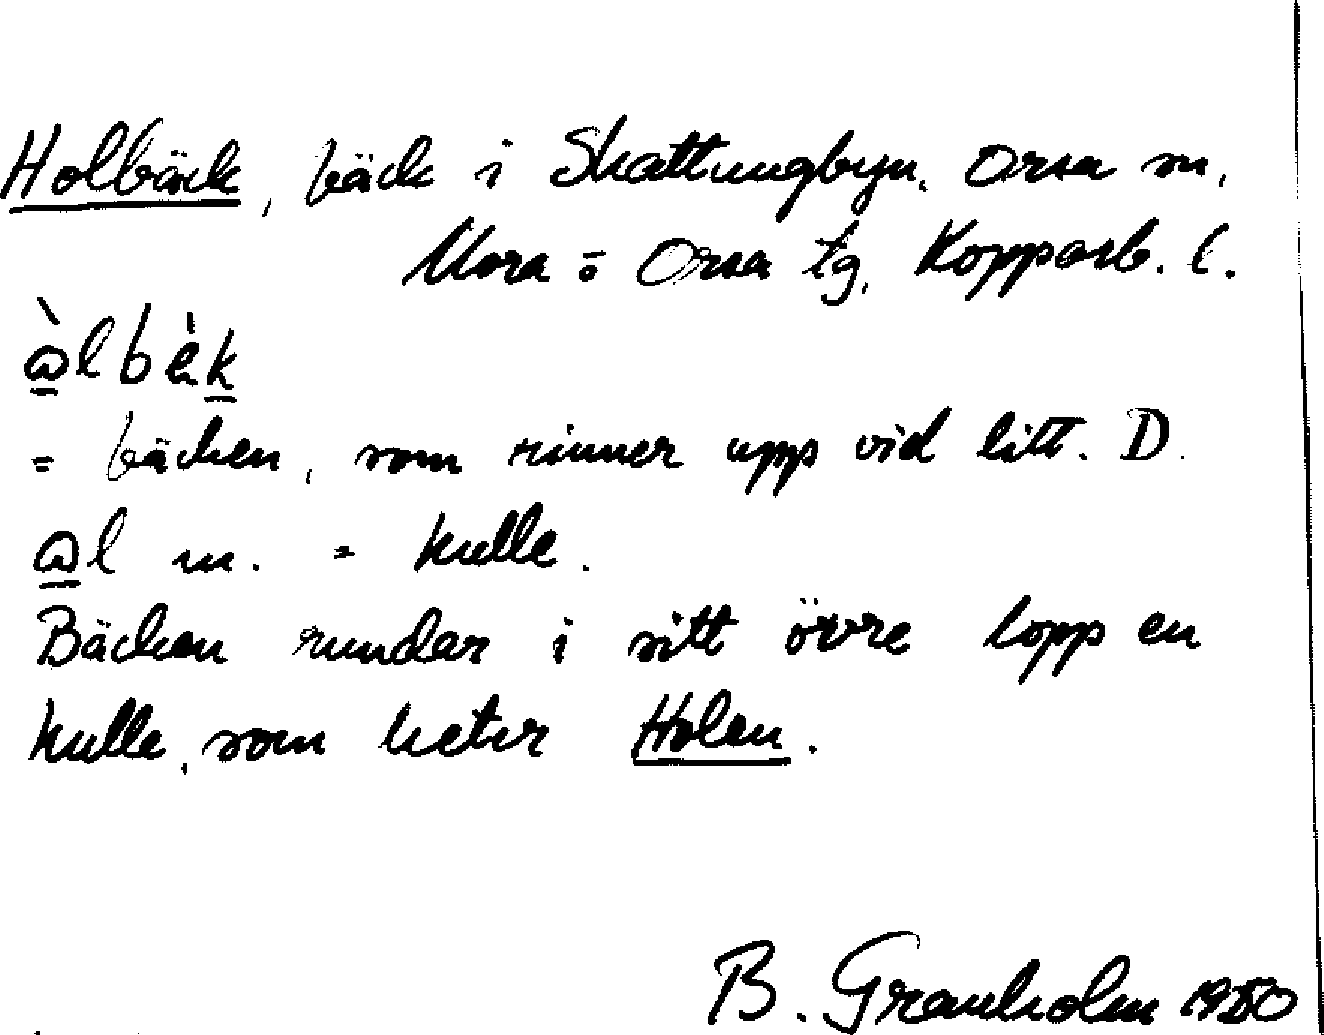 Holbäck, bäck i Skattungbyn, Orsa sn,
Mora o Orsa tg, Kopparb. l.
= bäcken, som rinner upp vid litt. D.
m. = kulle.
Bäcken rundar i sitt övre lopp en
kulle, som heter Holen.
B. Granholm 1950